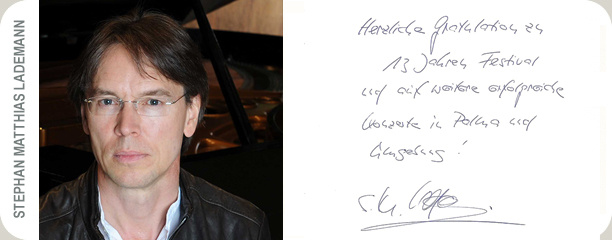 STEPHAN MATTHIAS LADEMANN
Herzliche Gratulation zu
13 Jahren Festival
und auf weitere erfolgreiche
Konzerte in Palma und
Umgebung!